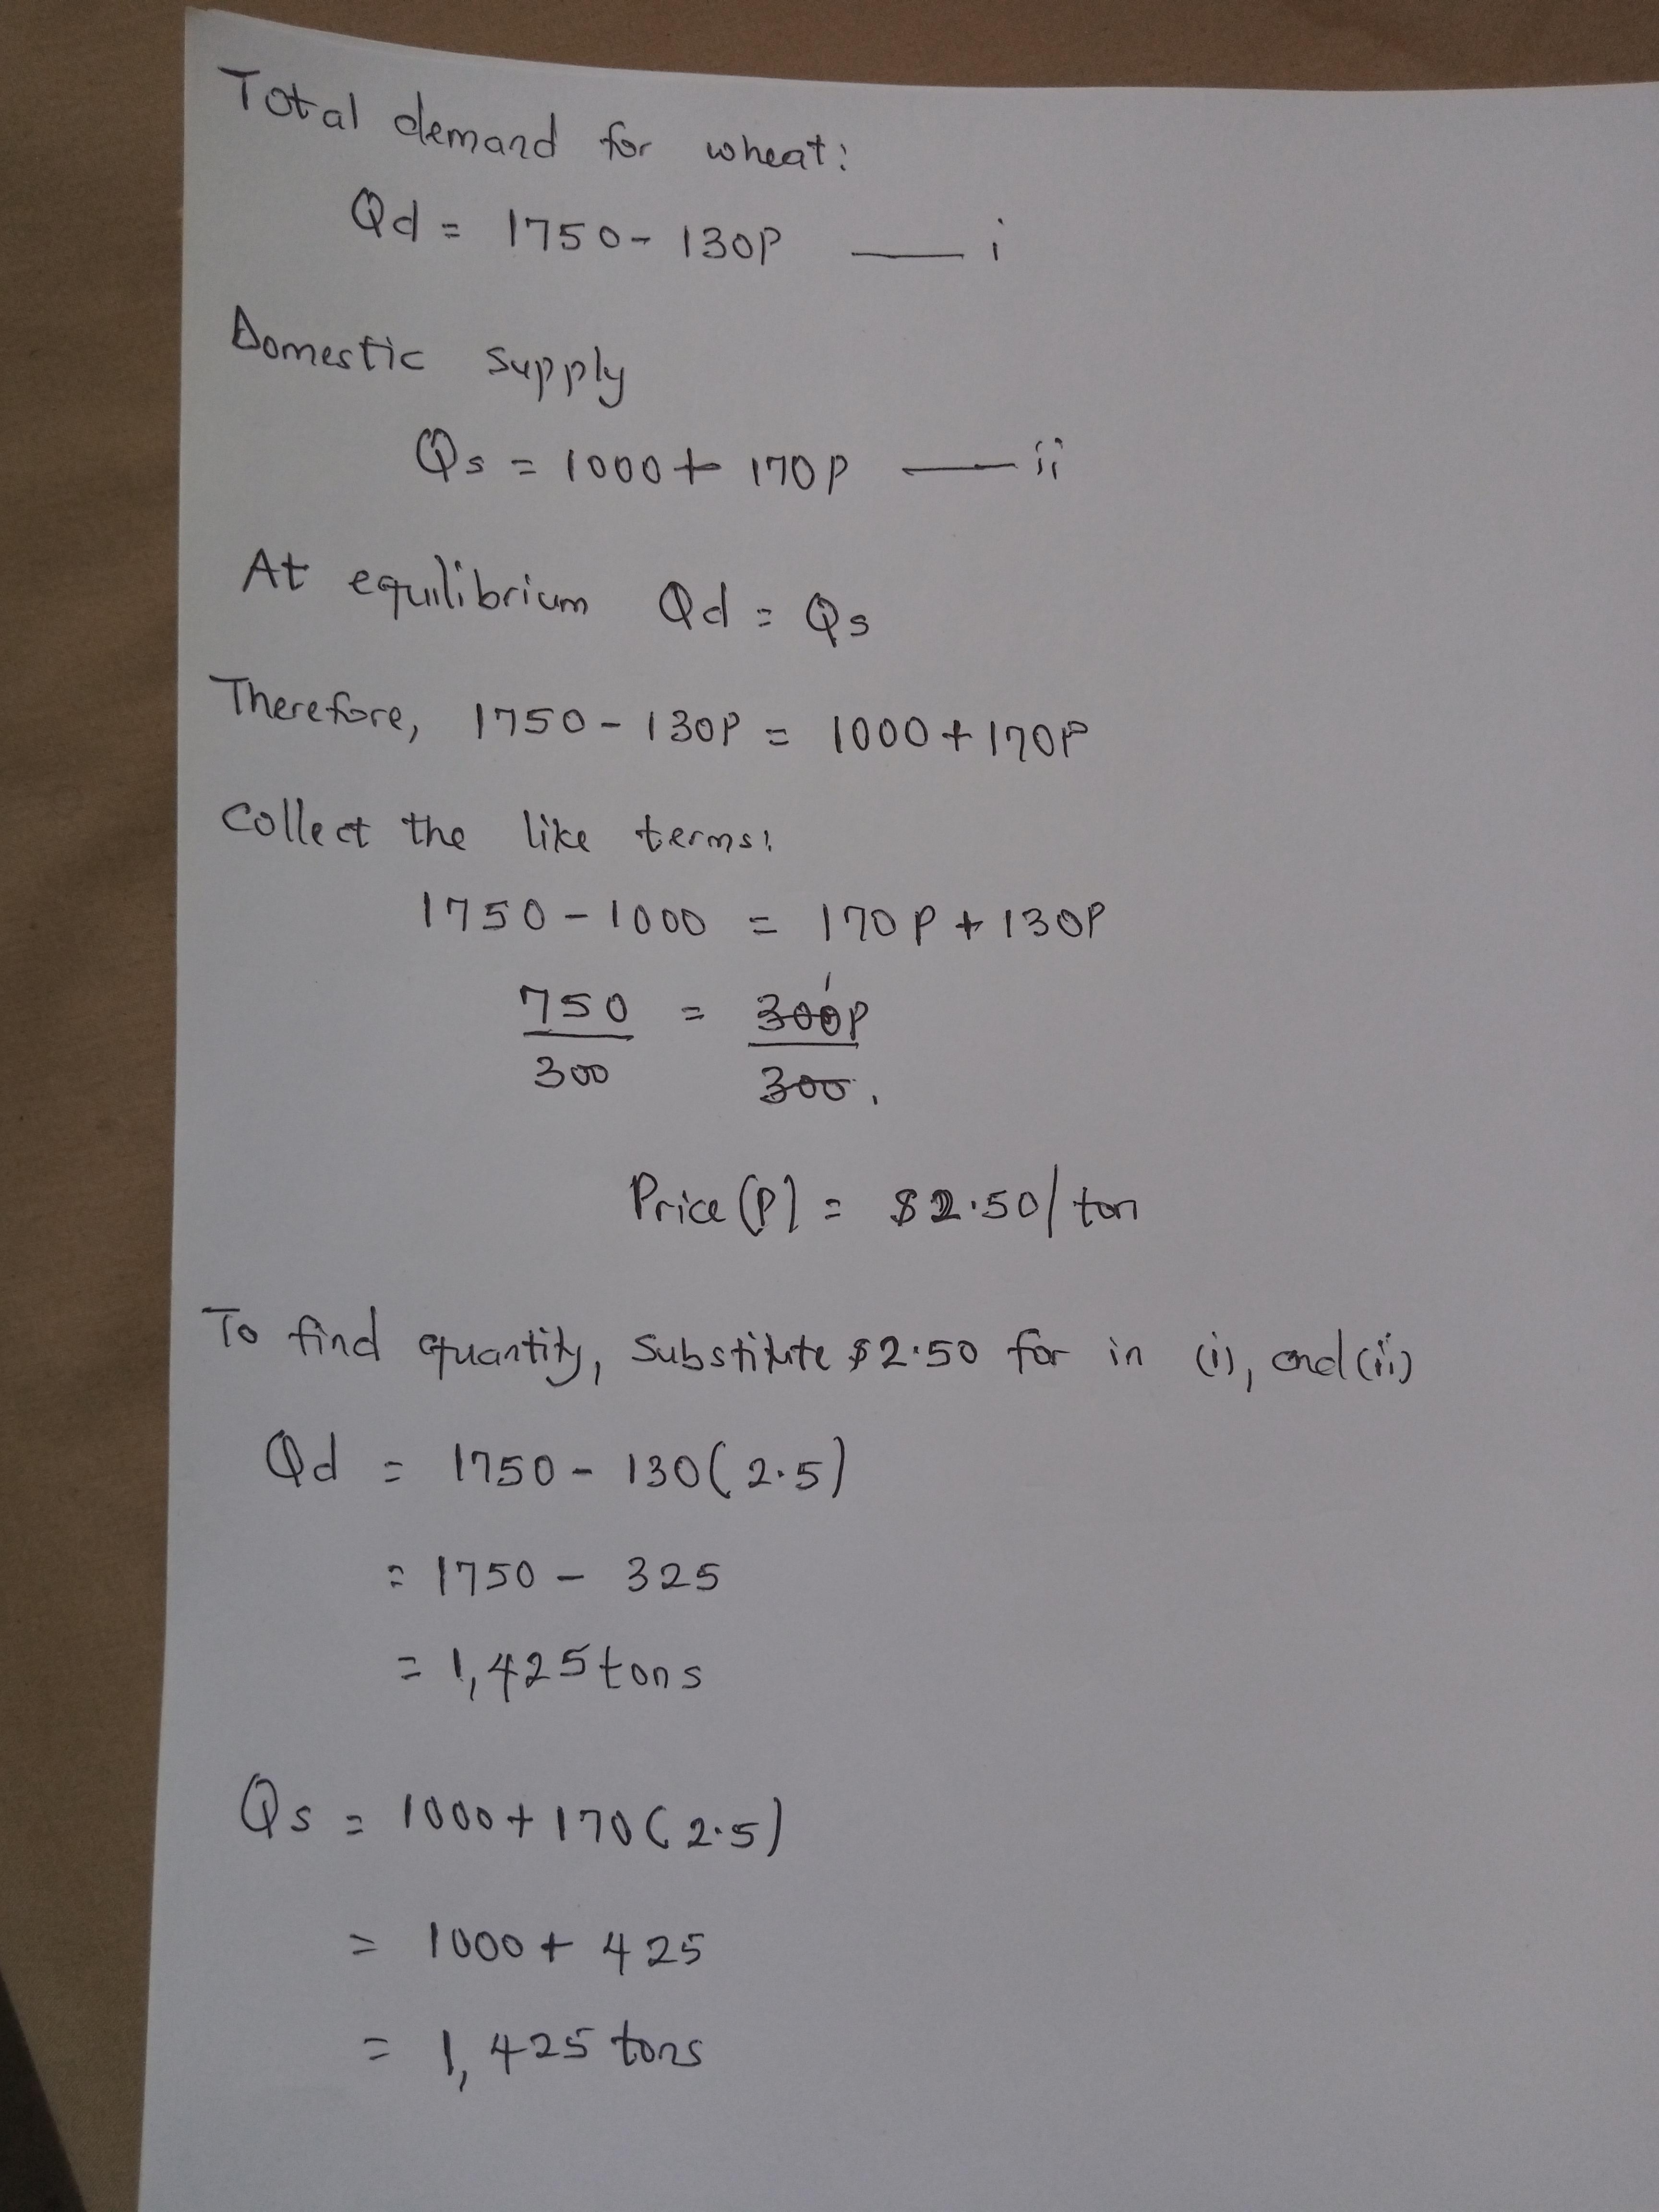 Total demand for wheat:
Qd = 1750 - 130P — i
Domestic supply
Qs = 1000 + 170P — ii
At equilibrium Qd = Qs
Therefore, 1750 - 130P = 1000 + 170P
Collect the like terms:
1750 - 1000 = 170P + 130P
750 = 300P
300 300.
Price (P) = $2.50/ton
To find quantity, substitute $2.50 for in (i), and (ii)
Qd = 1750 - 130(2.5)
= 1750 - 325
= 1,425 tons
Qs = 1000 + 170(2.5)
= 1000 + 425
= 1,425 tons